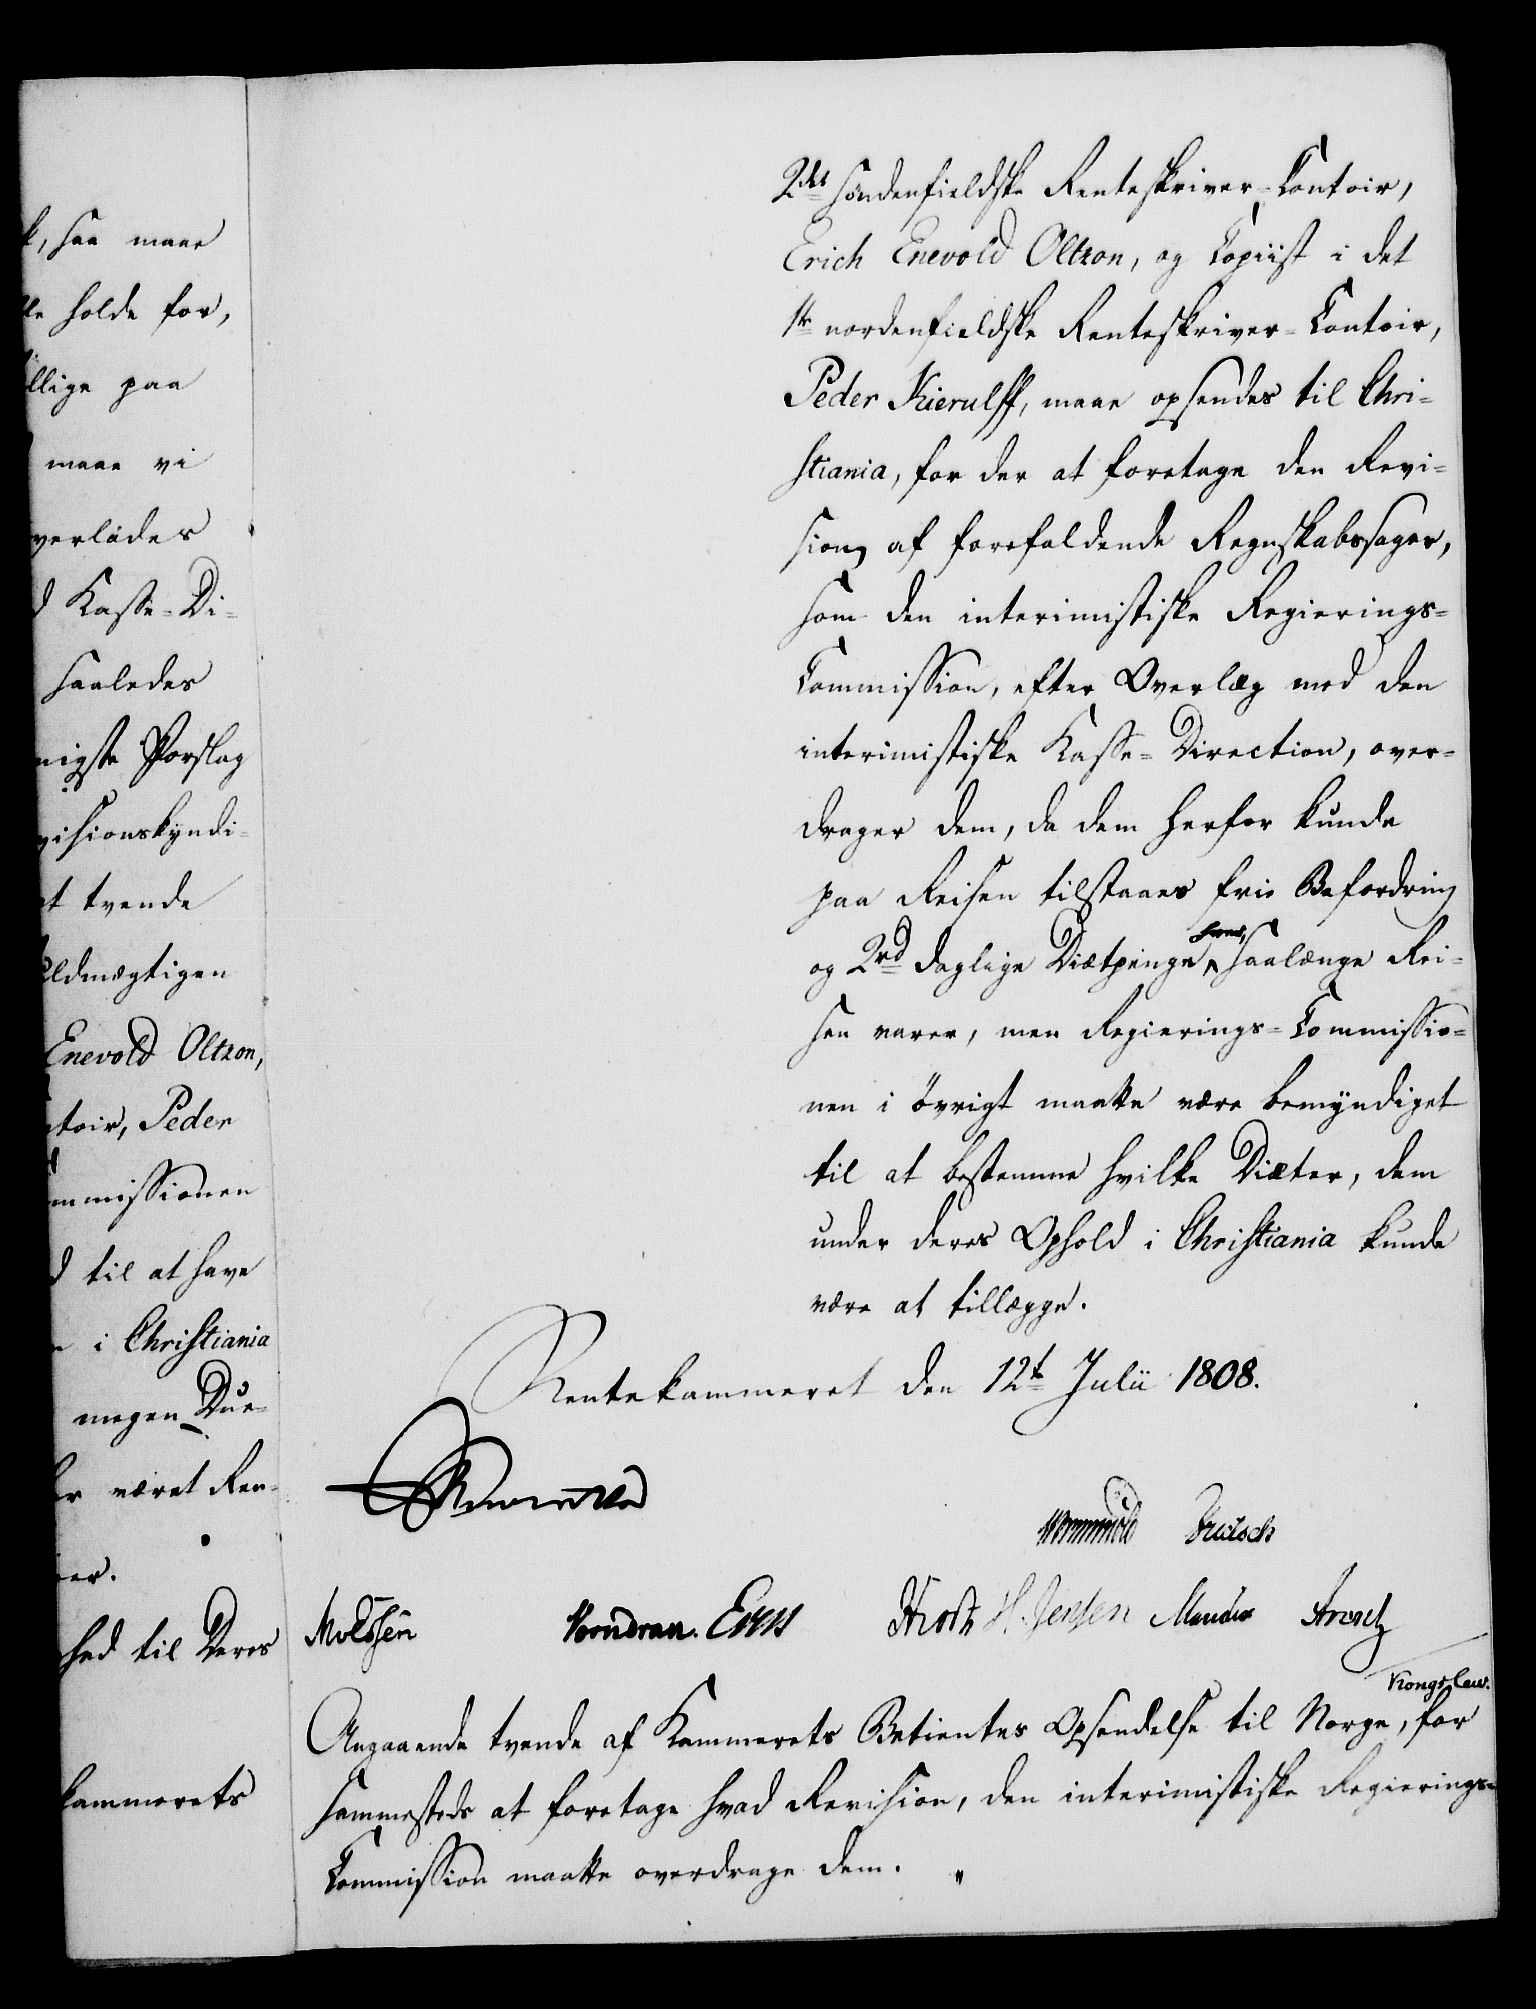 saa maae
holde for,
llige paa
maae vi
verlades
Kasse-Di-
saaledes
nigste Forslag
visionskyndi-
at tvende
uldmægtigen
Enevold Oltzon,
ntoir, Peder
mmissionen
til at have
i Christiania
megen Due-
været Ren-
hed til Deres
kammerets
2det söndenfieldske Renteskriver-Contoir,
Erich Enevold Oltzon, og Copiist i det
1te nordenfieldske Renteskriver-Contoir,
Peder Kierulff, maae opsendes til Chri-
stiania, for der at foretage den Revi-
sion af forefaldende Regnskabssager,
som den interimistiske Regierings-
Commission, efter Overlæg med den
interimistiske Kasse-Direction, over-
drager dem, da dem herfor kunde
paa Reisen tilstaaes frie Befordring
og 2rd daglige Diætpenge hver, saalænge Rei-
sen varer, men Regierings-Commissio-
nen i övrigt maatte være bemyndiget
til at bestemme hvilke Diæter, dem
under deres Ophold i Christiania kunde
være at tillægge.
Rentekammeret den 12te Julii 1808.
Wormskiold
Knudsen Vorndran. H. Jensen
Kongslew.
Angaaende tvende af Kammerets Betientes Opsendelse til Norge, for
sammesteds at foretage hvad Revision, den interimistiske Regierings-
Commission maatte overdrage dem.